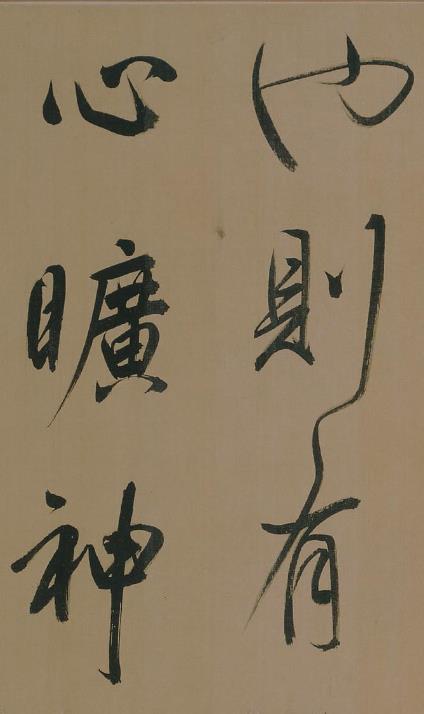 也則有
心曠神